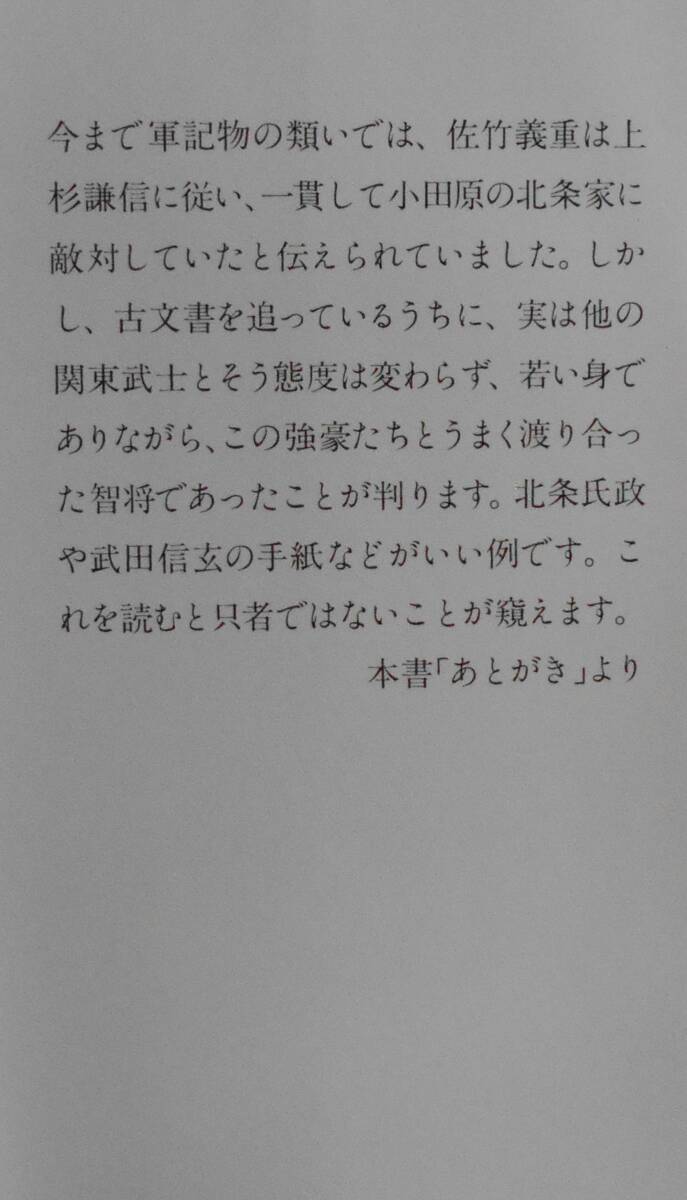 今まで軍記物の類いでは、佐竹義重は上
杉謙信に従い、一貫して小田原の北条家に
敵対していたと伝えられていました。しか
し、古文書を追っているうちに、実は他の
関東武士とそう態度は変わらず、若い身で
ありながら、この強豪たちとうまく渡り合っ
た智将であったことが判ります。北条氏政
や武田信玄の手紙などがいい例です。こ
れを読むと只者ではないことが窺えます。
本書「あとがき」より